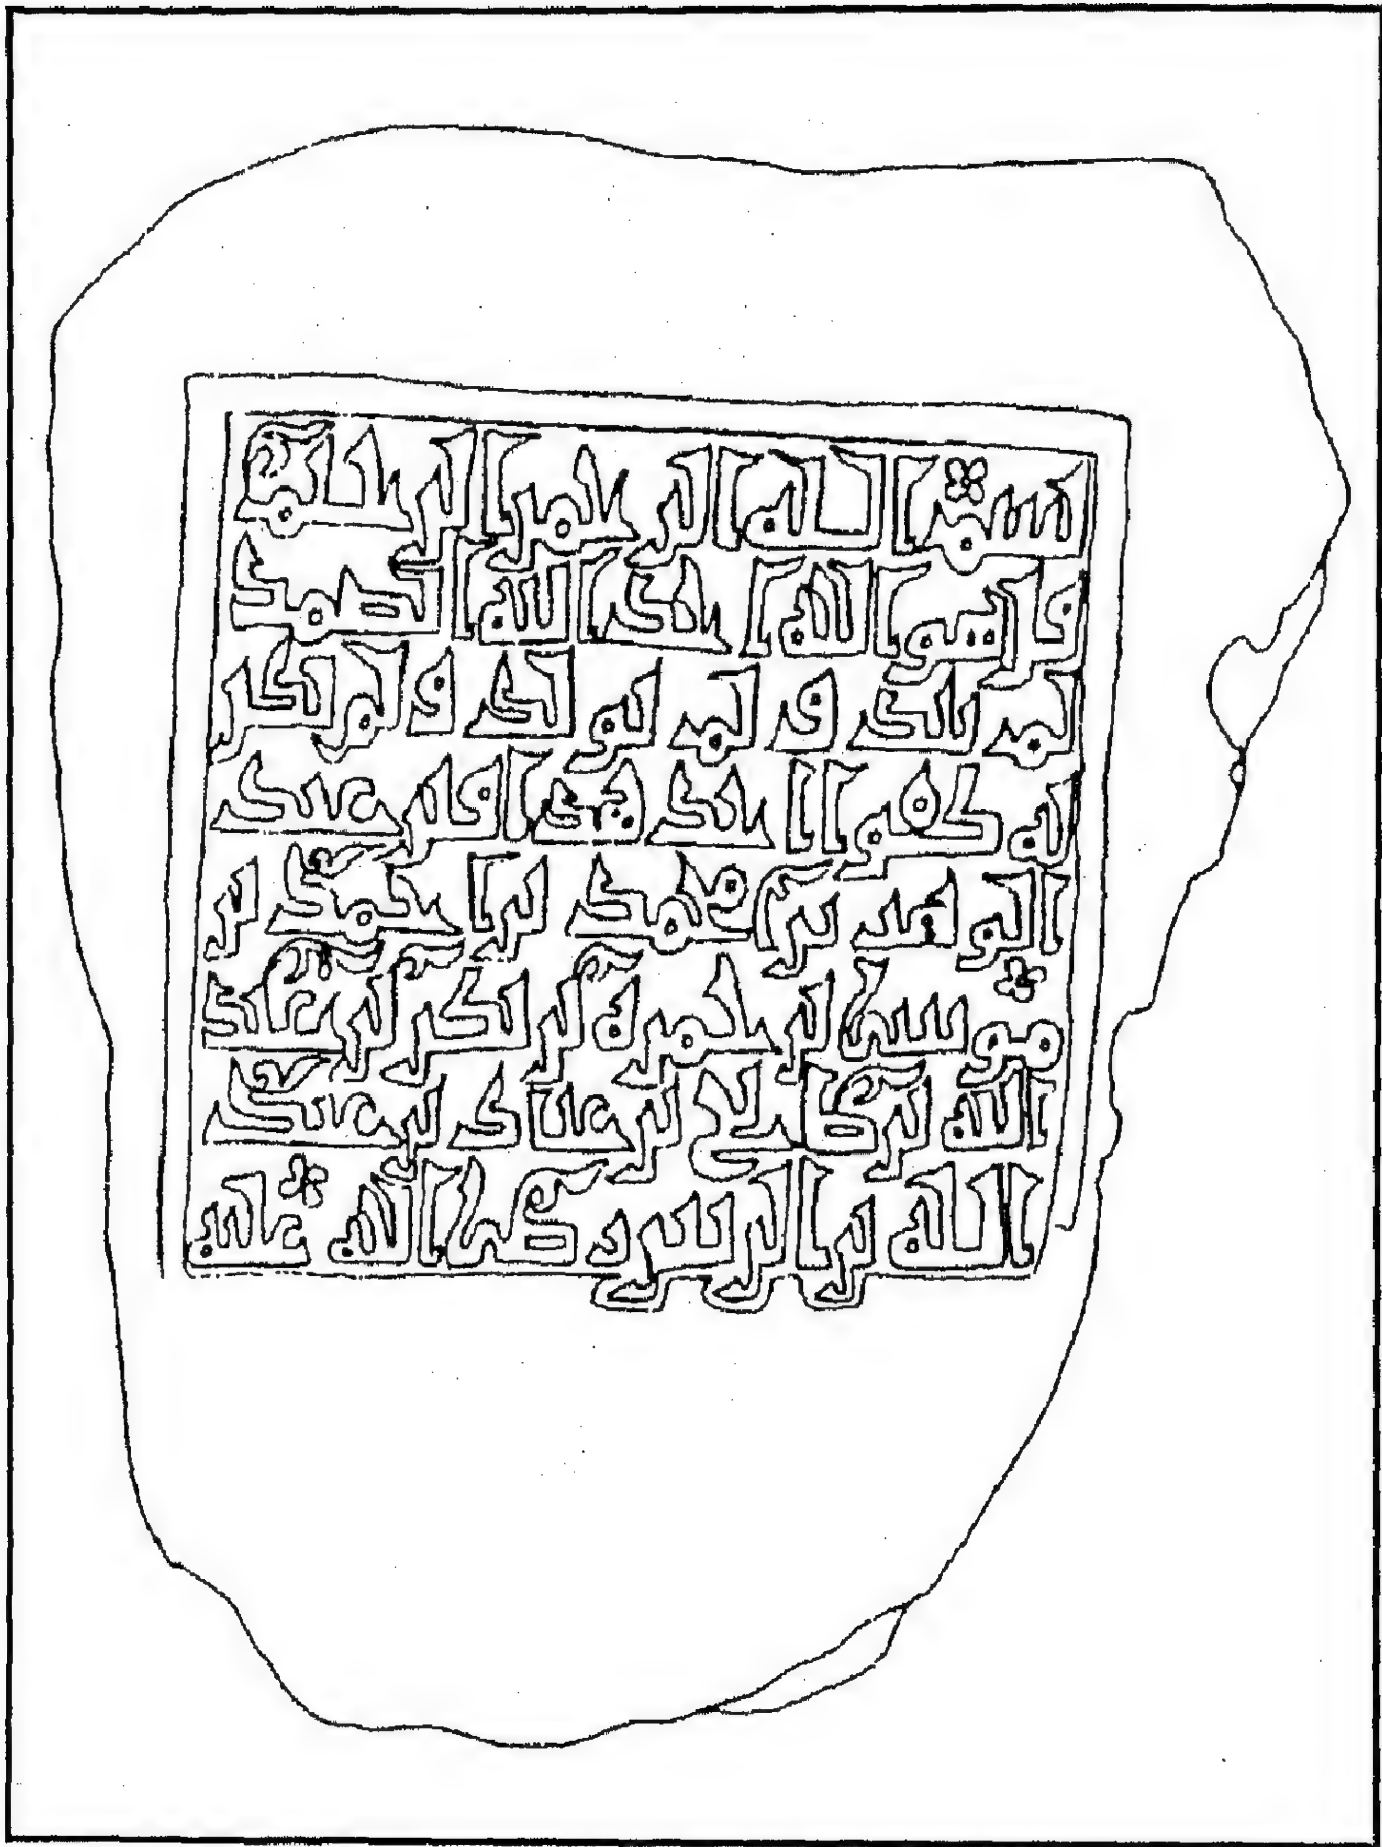 بسم الله الرحمن الرحيم
قل هو الله احد الله الصمد
لم يلد ولم يولد ولم يكن
له كفوا احد هذا قبر عبد
الواحد بن محمد بن احمد بن
موسى بن حمزة بن بكر بن عبد
الله بن صالح بن عباد بن عبد
الله بن الزبير صلى الله عليه